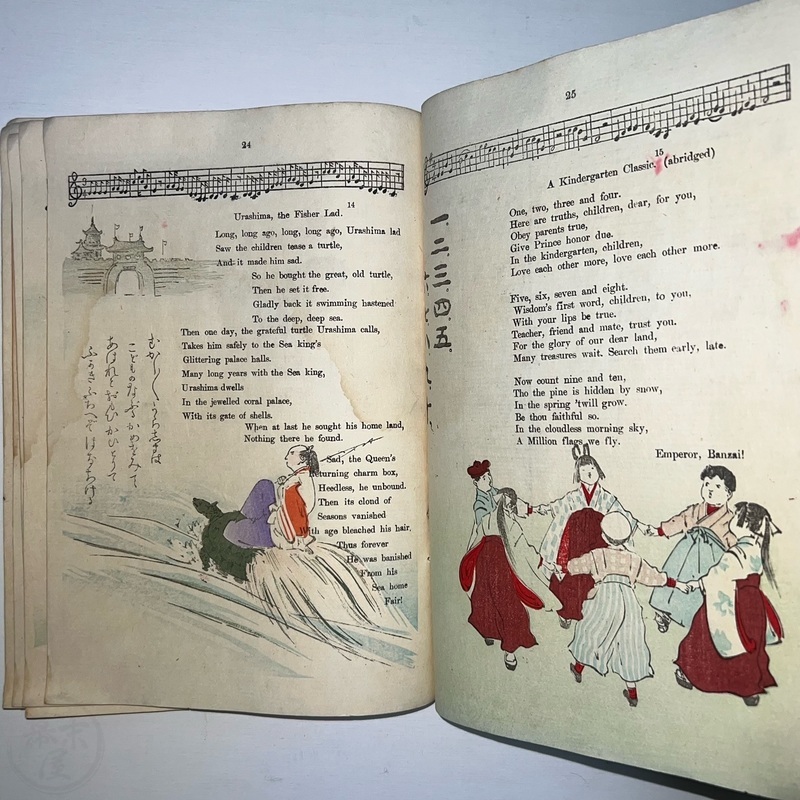 24
14
Urashima, the Fisher Lad.
Long, long ago, long, long ago, Urashima lad
Saw the children tease a turtle,
And it made him sad.
So he bought the great, old turtle,
Then he set it free.
Gladly back it swimming hastened
To the deep, deep sea.
Then one day, the grateful turtle Urashima calls,
Takes him safely to the Sea king's
Glittering palace halls.
Many long years with the Sea king,
Urashima dwells
In the jewelled coral palace,
With its gate of shells.
When at last he sought his home land,
Nothing there he found.
Sad, the Queen's
Returning charm box,
Heedless, he unbound.
Then its cloud of
Seasons vanished
With age bleached his hair.
Thus forever
He was banished
From his
Sea home
Fair!
むかし〱うらしまは
こどものなぶるかめをみて
あはれとおもひかひとりて
ふかきふちへぞはなちける
25
15
A Kindergarten Classic. (abridged)
One, two, three and four.
Here are truths, children, dear, for you,
Obey parents true,
Give Prince honor due.
In the kindergarten, children,
Love each other more, love each other more.
Five, six, seven and eight.
Wisdom's first word, children, to you,
With your lips be true.
Teacher, friend and mate, trust you.
For the glory of our dear land,
Many treasures wait. Search them early, late.
Now count nine and ten,
Tho the pine is hidden by snow,
In the spring 'twill grow.
Be thou faithful so.
In the cloudless morning sky,
A Million flags we fly.
Emperor, Banzai!
一二三四五